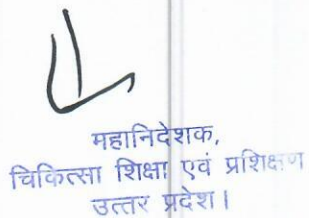 महानिदेशक,
चिकित्सा शिक्षा एवं प्रशिक्षण
उत्तर प्रदेश।